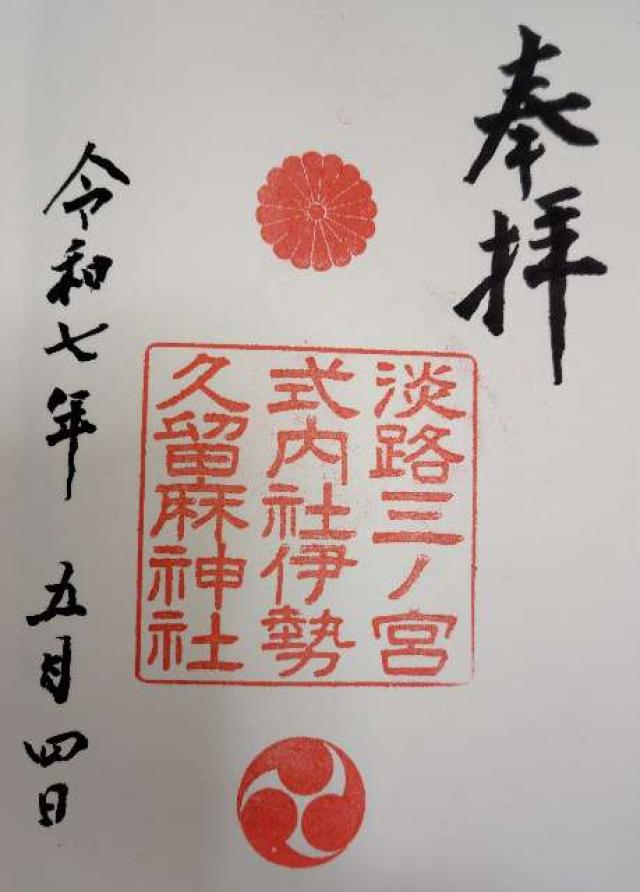 奉拝
淡路三ノ宮
式内社伊勢
久留麻神社
令和七年 五月四日